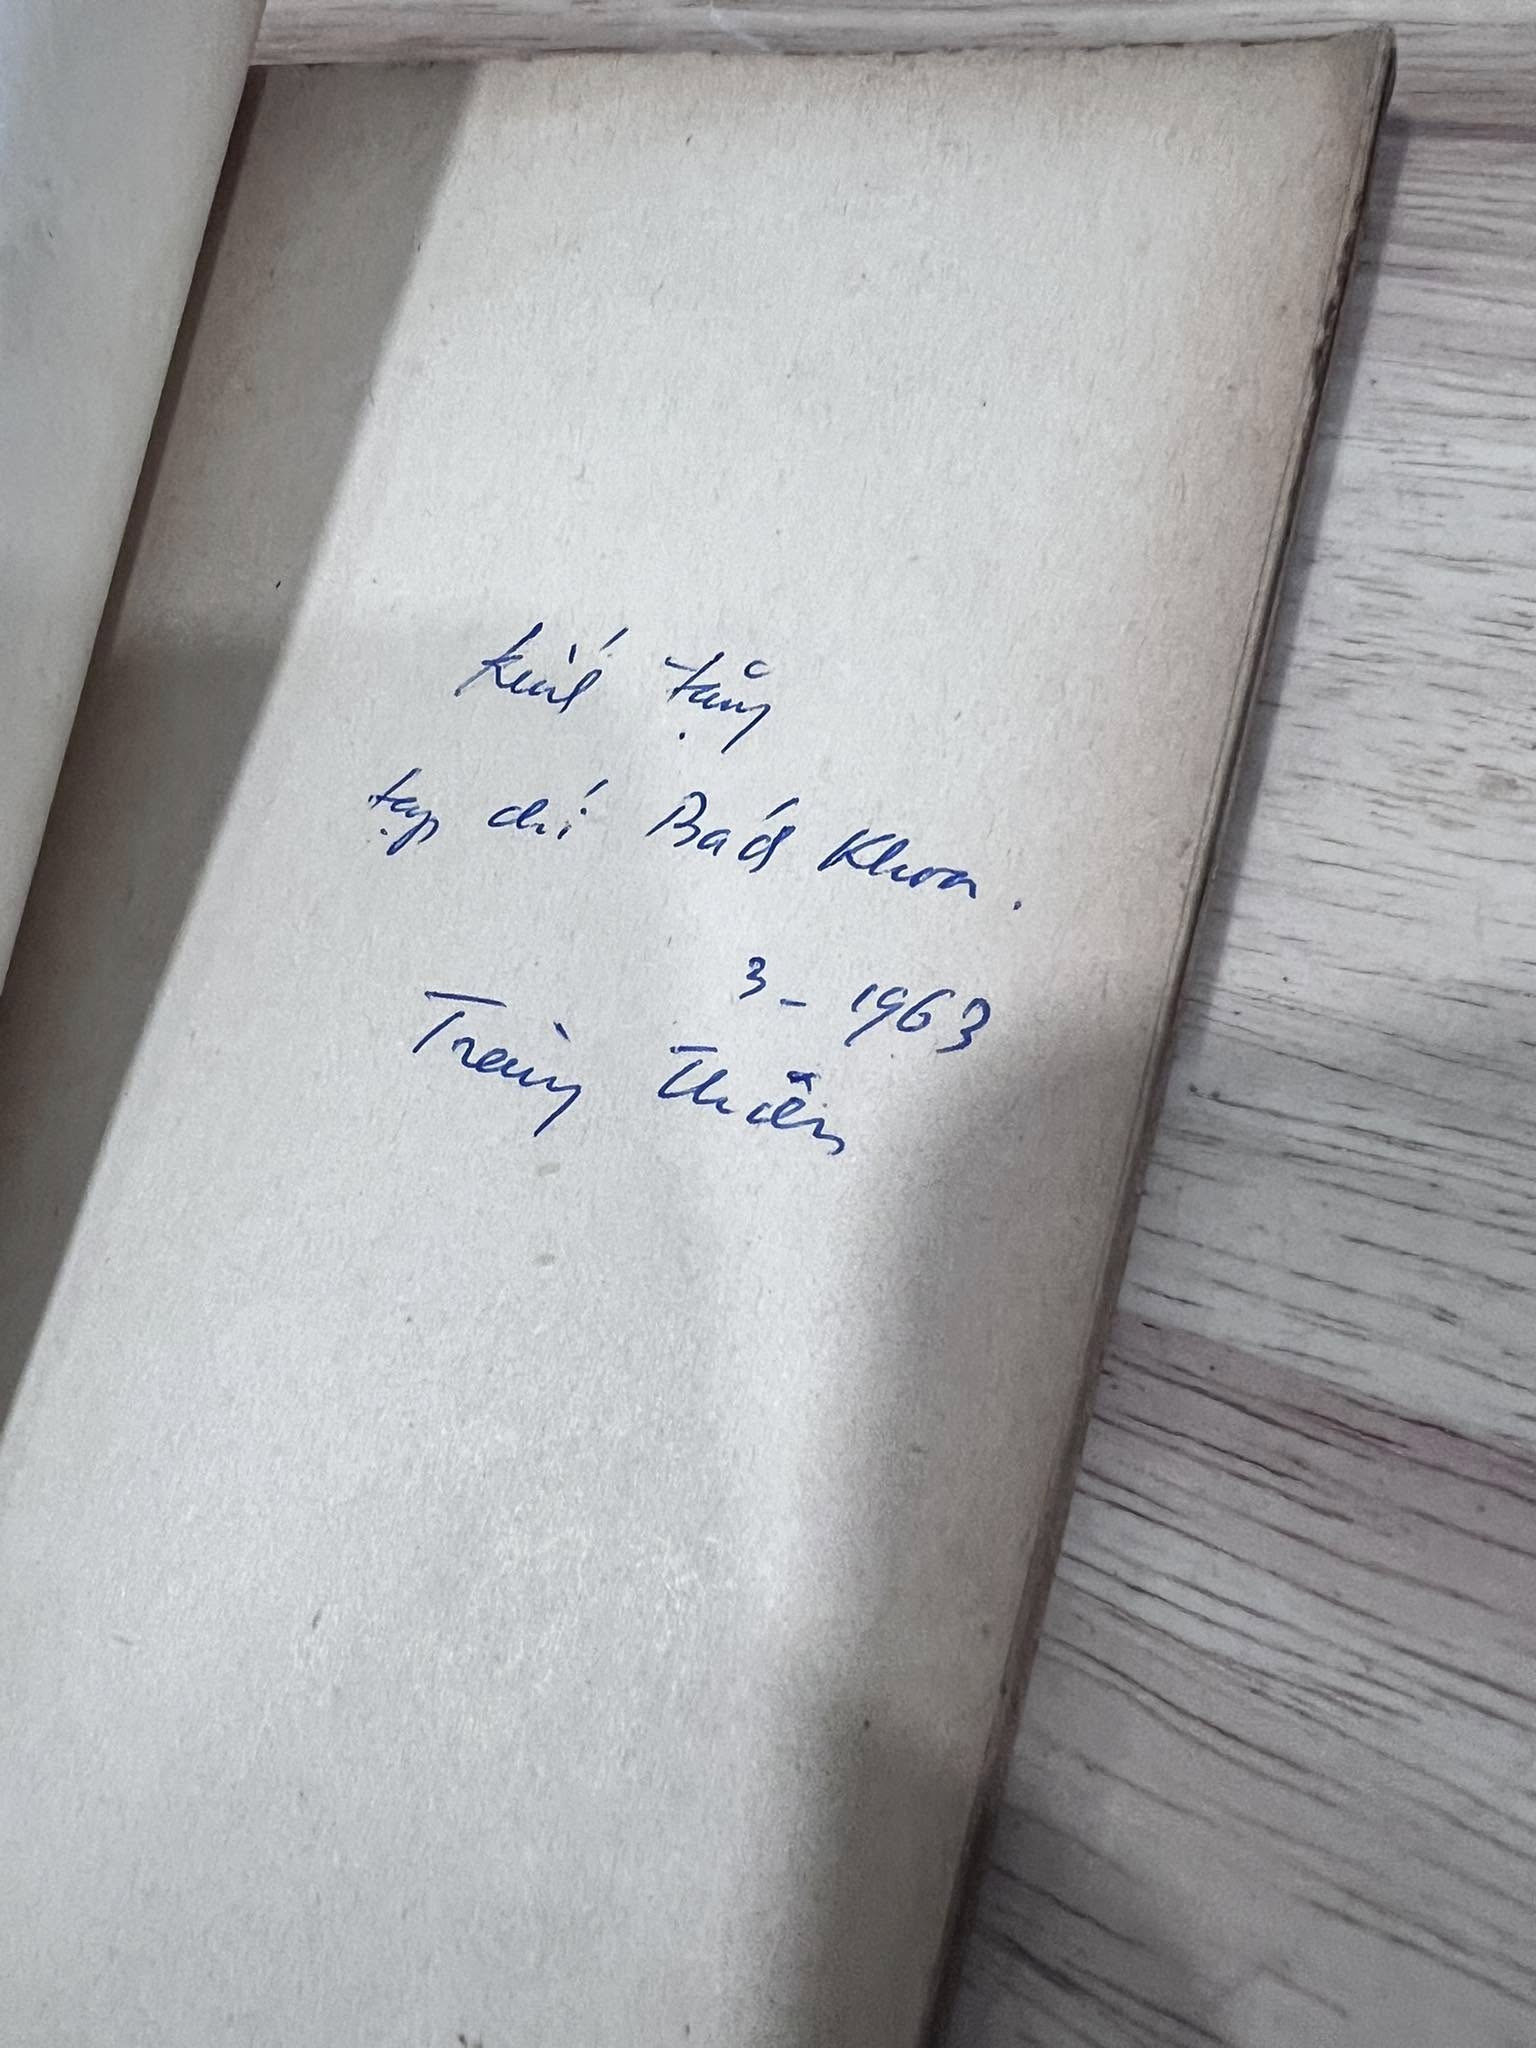 Kính tặng
tạp chí Bách Khoa.
3-1963
Tràng Thiên